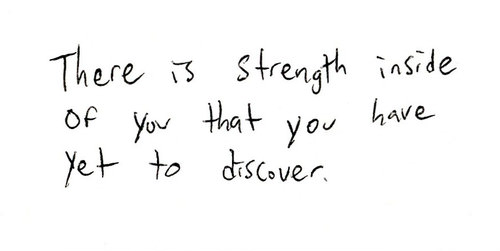 There is strength inside
of you that you have
yet to discover.